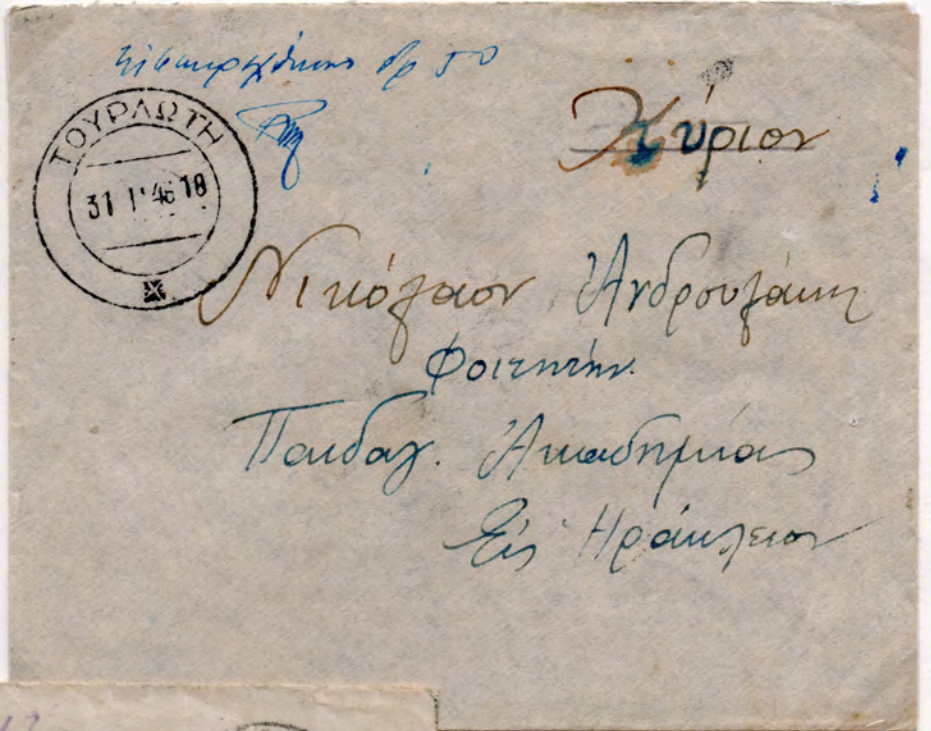 Εἰσεπράχθησαν δρ 50
ΤΟΥΡΛΩΤΗ
31 Ι 46 18
Κύριον
Νικόλαον Ἀνδρουλάκη
Φοιτητήν.
Παιδαγ. Ἀκαδημίας
Εἰς Ἡράκλειον